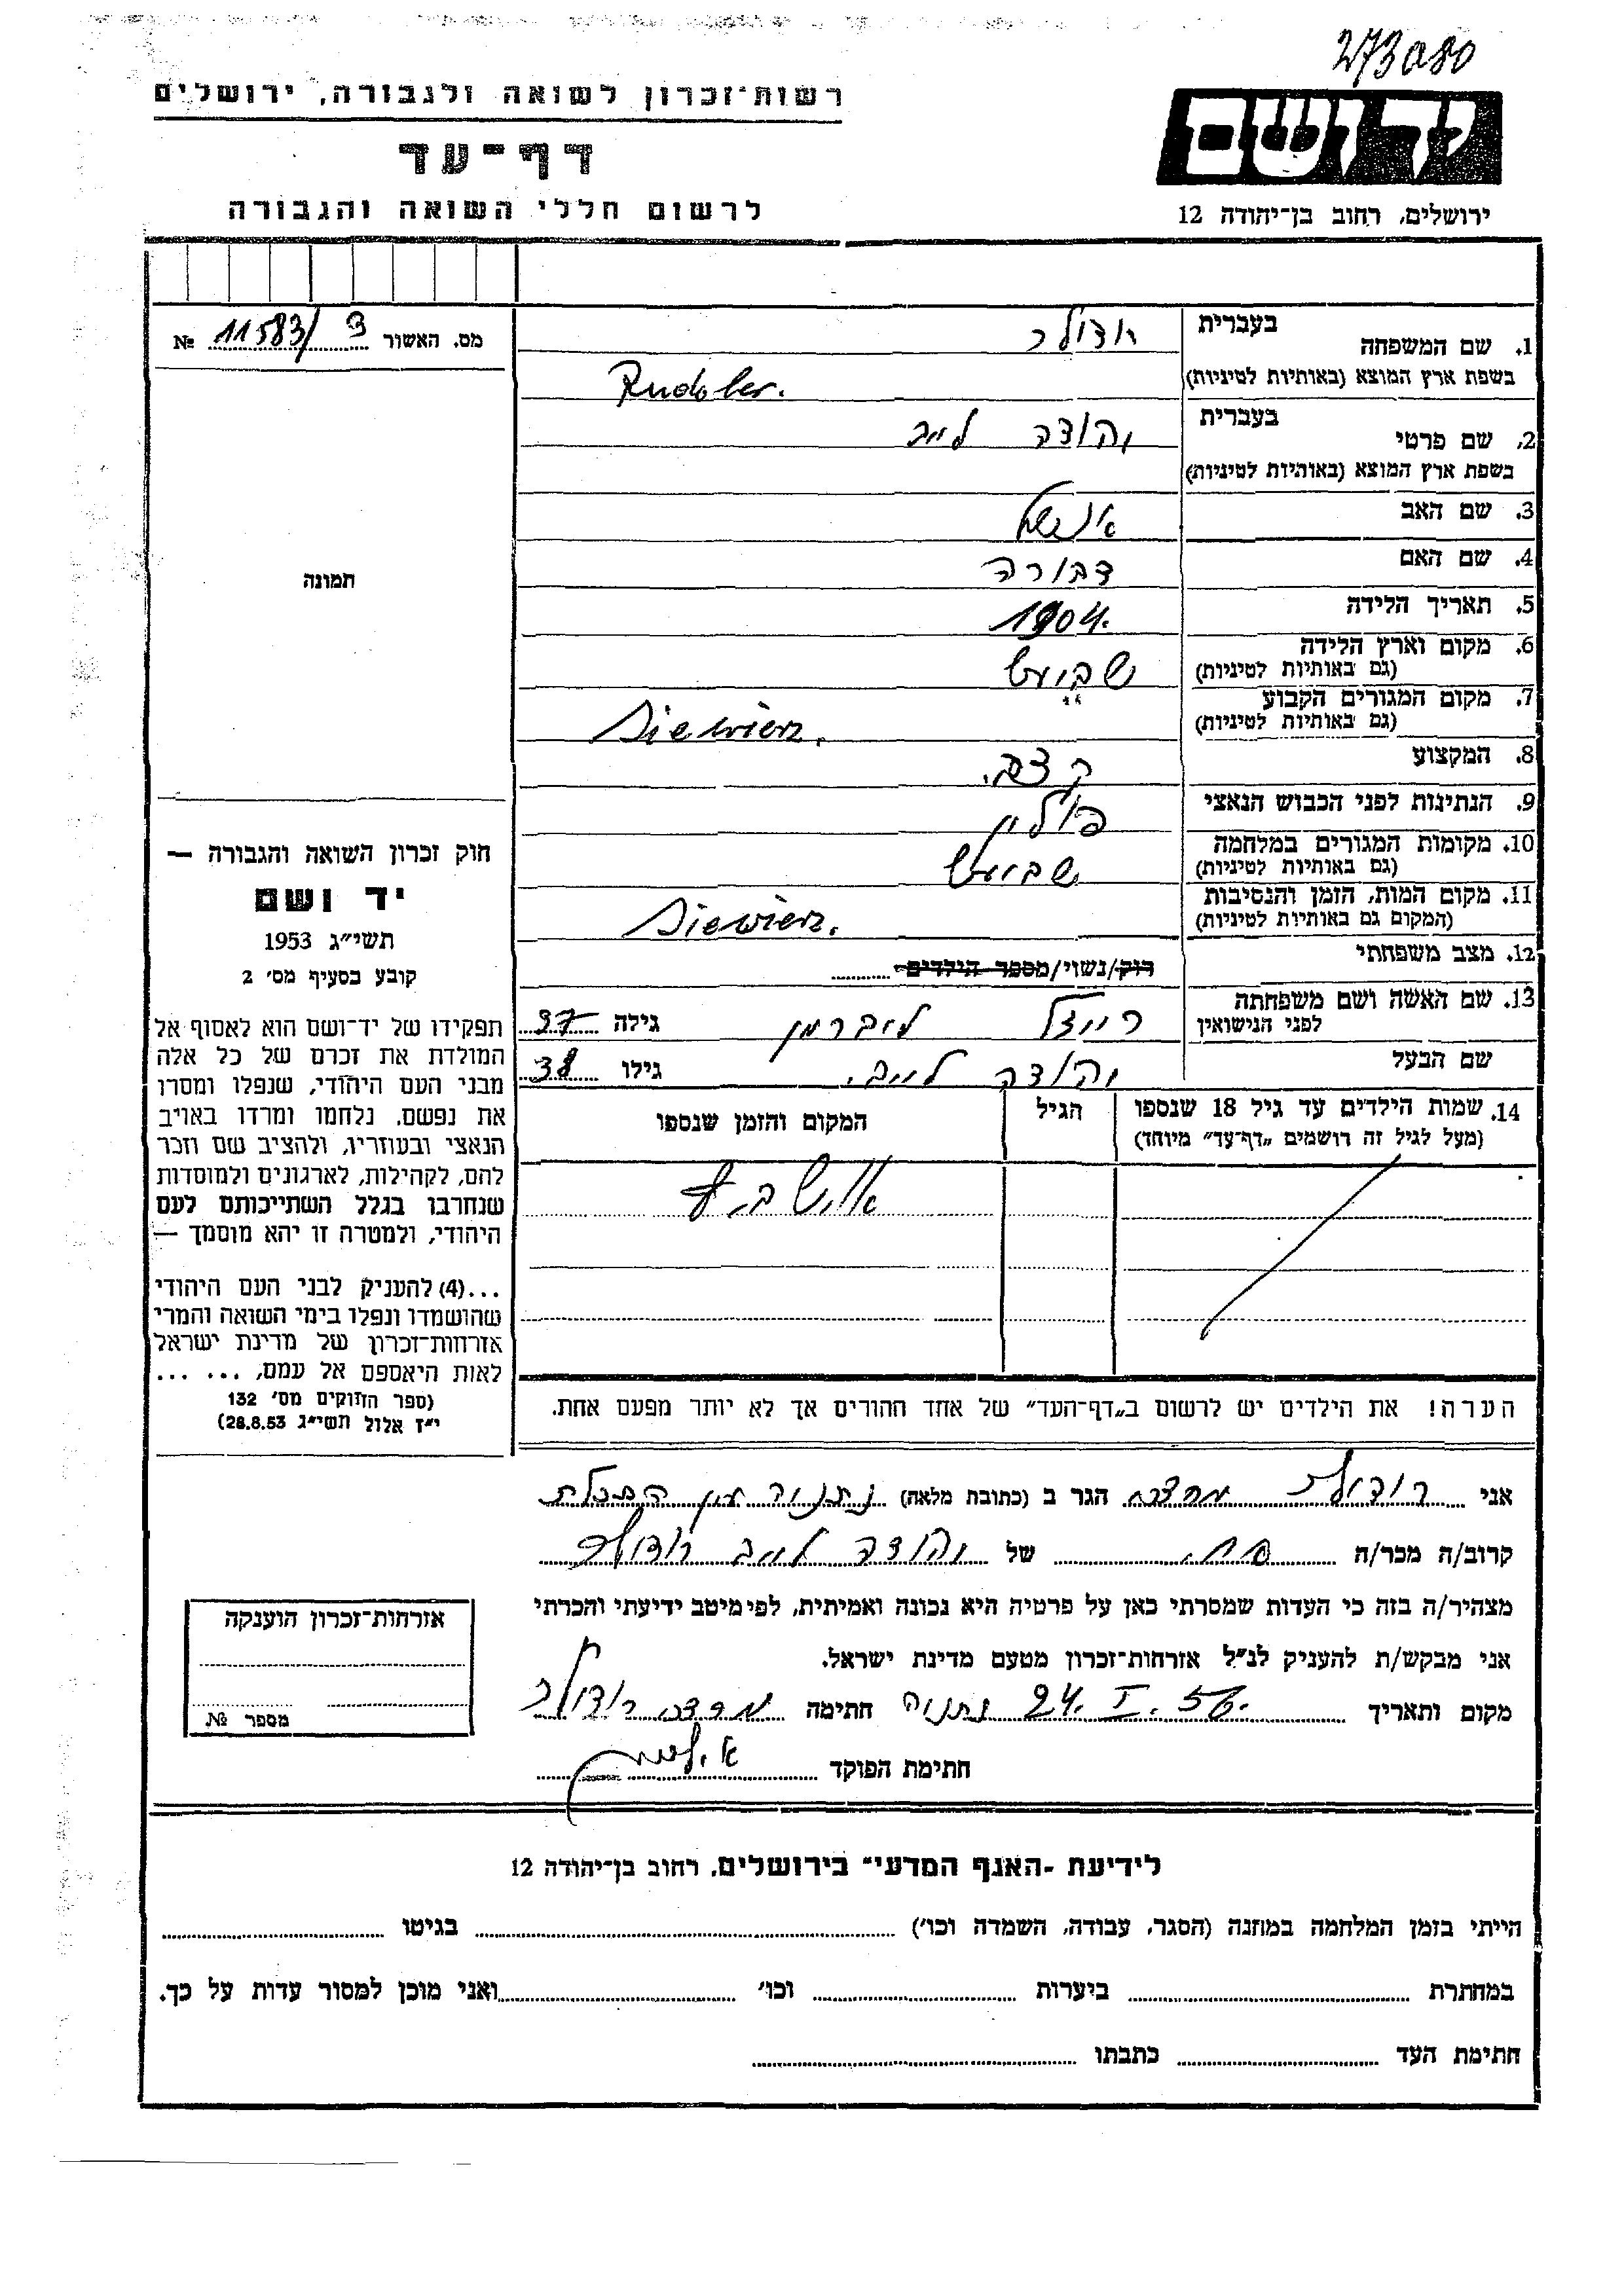 273080
רשות־זכרון לשואה ולגבורה, ירושלים
יד ושם
דף־עד
לרשום חללי השואה והגבורה
ירושלים, רחוב בן־יהודה 12
מס. האשור 11583/ №
1. שם המשפחה בעברית רודולר
בשפת ארץ המוצא (באותיות לטיניות) Rudoler.
2. שם פרטי בעברית יהודה לייב
בשפת ארץ המוצא (באותיות לטיניות)
3. שם האב אנשל
4. שם האם דבורה
5. תאריך הלידה 1904.
6. מקום וארץ הלידה
(גם באותיות לטיניות)
7. מקום המגורים הקבוע
(גם באותיות לטיניות) Siewierz.
8. המקצוע קצב.
9. הנתינות לפני הכבוש הנאצי פולין
10. מקומות המגורים במלחמה
(גם באותיות לטיניות)
11. מקום המות, הזמן והנסיבות
(המקום גם באותיות לטיניות) Siewierz.
12. מצב משפחתי רוק/נשוי/מספר הילדים
13. שם האשה ושם משפחתה
לפני הנישואין רייזל ליברמן גילה 37
שם הבעל יהודה לייב. גילו 38
14. שמות הילדים עד גיל 18 שנספו הגיל המקום והזמן שנספו
(מעל לגיל זה רושמים „דף־עד” מיוחד)
אושביץ
הערה! את הילדים יש לרשום ב„דף־העד” של אחד ההורים אך לא יותר מפעם אחת.
תמונה
חוק זכרון השואה והגבורה —
יד ושם
תשי״ג 1953
קובע בסעיף מס׳ 2
תפקידו של יד־ושם הוא לאסוף אל
המולדת את זכרם של כל אלה
מבני העם היהודי, שנפלו ומסרו
את נפשם, נלחמו ומרדו באויב
הנאצי ובעוזריו, ולהציב שם וזכר
להם, לקהילות, לארגונים ולמוסדות
שנחרבו בגלל השתייכותם לעם
היהודי, ולמטרה זו יהא מוסמך —
...(4) להעניק לבני העם היהודי
שהושמדו ונפלו בימי השואה והמרי
אזרחות־זכרון של מדינת ישראל
לאות היאספם אל עמם, ... ...
(ספר החוקים מס׳ 132
י״ז אלול תשי״ג 28.8.53)
אני רודולר מרדכי הגר ב (כתובת מלאה) נתניה עין התכלת
קרוב/ה מכר/ה אח. של יהודה לייב רודולר
מצהיר/ה בזה כי העדות שמסרתי כאן על פרטיה היא נכונה ואמיתית, לפי מיטב ידיעתי והכרתי
אני מבקש/ת להעניק לנ״ל אזרחות־זכרון מטעם מדינת ישראל.
מקום ותאריך נתניה 24. I. 56. חתימה מרדכי רודולר
חתימת הפוקד
אזרחות־זכרון הוענקה
מספר №
לידיעת ־האגף המדעי־ בירושלים, רחוב בן־יהודה 12
הייתי בזמן המלחמה במחנה (הסגר, עבודה, השמדה וכו׳) בגיטו
במחתרת ביערות וכו׳ ואני מוכן למסור עדות על כך.
חתימת העד כתבתו